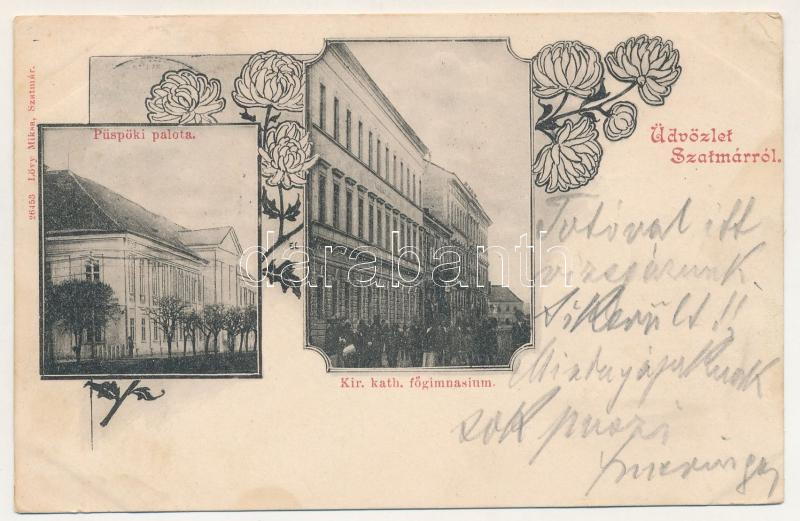 Püspöki palota.
26453 Lővy Miksa, Szatmár.
Kir. kath. főgimnasium.
Üdvözlet
Szatmárról.
Totóval itt
vizsgázunk
Sikerült!!
sok puszi
darabanth